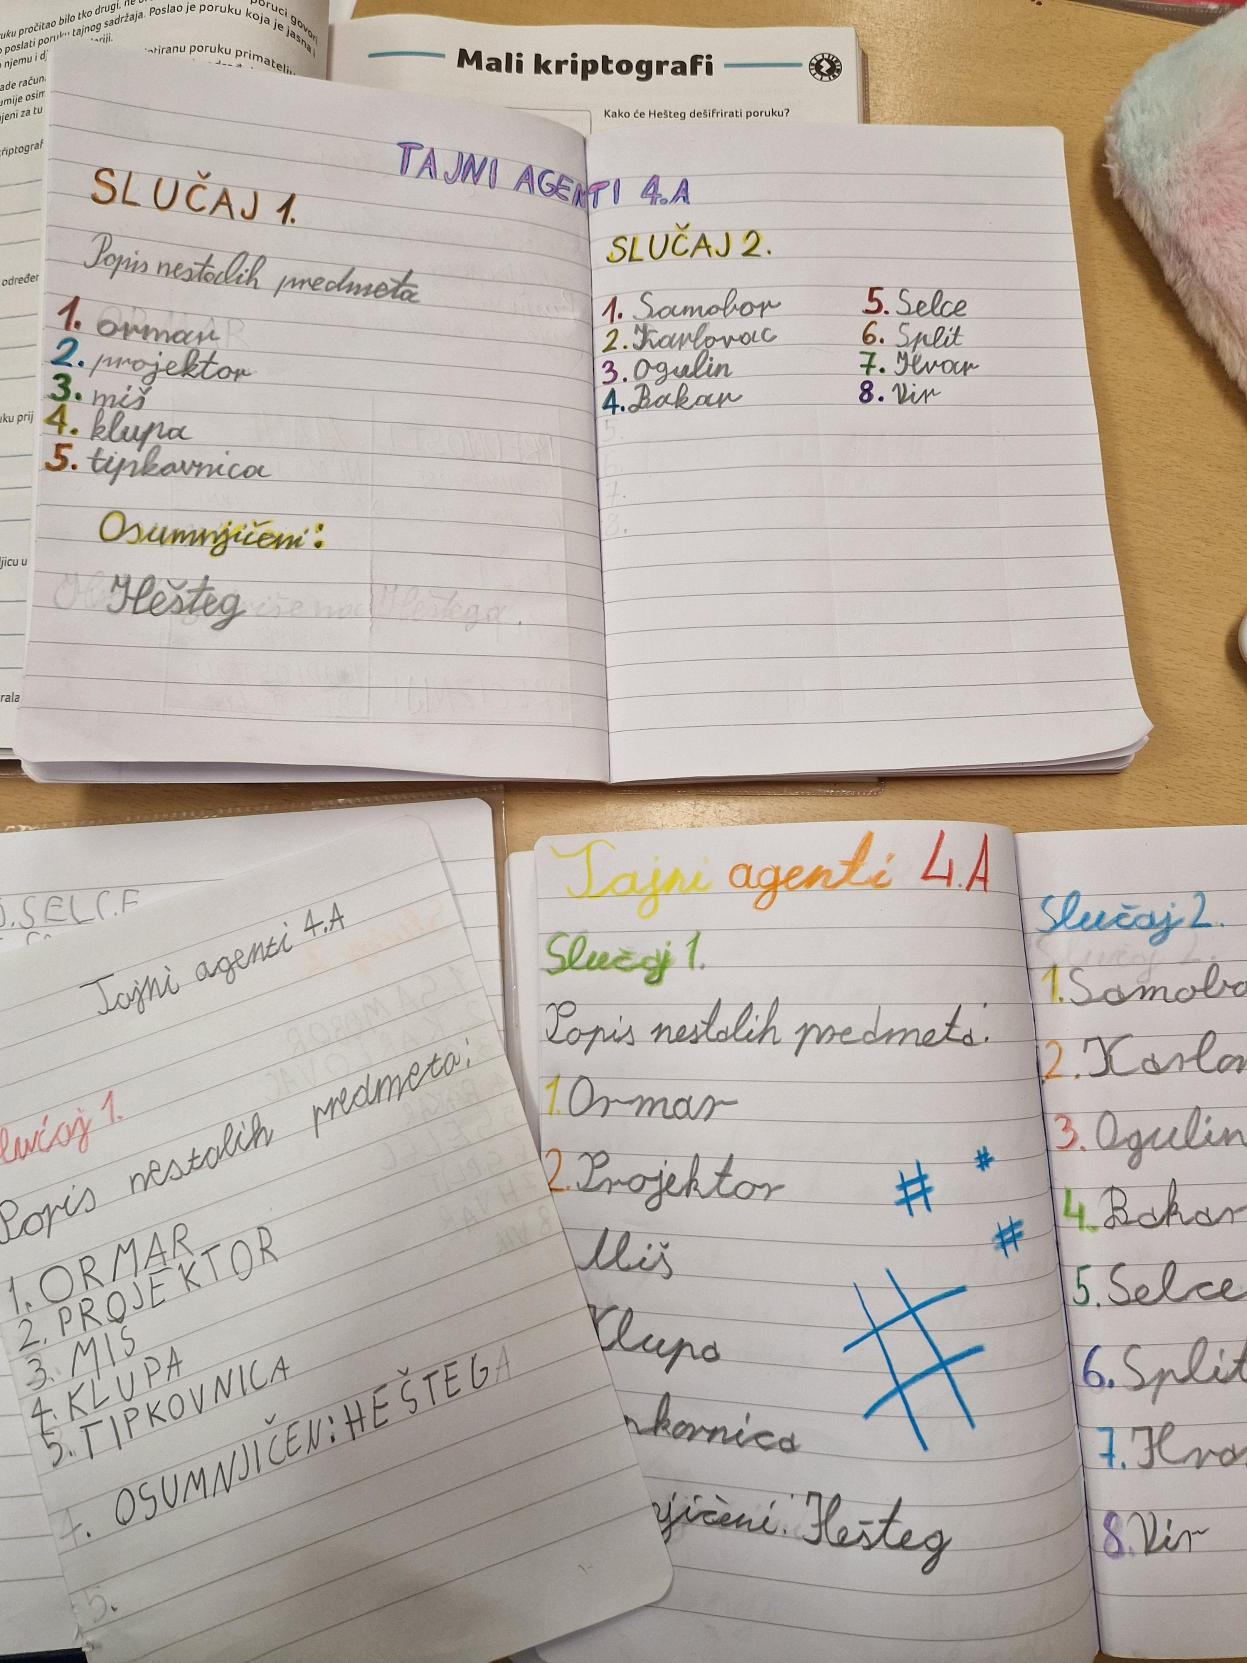 poruci govori
uku pročitao bilo tko drugi, ne
o poslati poruku tajnog sadržaja. Poslao je poruku koja je jasna i
njemu i
poruku primatelju
ade račun
umije osim
njeni za tu
kriptograf
određen
uku prij
jicu u
rala
Mali kriptografi
Kako će Hešteg dešifrirati poruku?
TAJNI AGENTI 4.A
SLUČAJ 1.
Popis nestalih predmeta
1. ormar
2. projektor
3. miš
4. klupa
5. tipkovnica
Osumnjičeni:
Hešteg
SLUČAJ 2.
1. Samobor
2. Karlovac
3. Ogulin
4. Bakar
5.
6.
7.
8.
5. Selce
6. Split
7. Hvar
8. Vir
.SELCE
Tajni agenti 4.A
lučaj 1.
Popis nestalih predmeta:
1. ORMAR
2. PROJEKTOR
3. MIŠ
4. KLUPA
5. TIPKOVNICA
4. OSUMNJIČEN: HEŠTEGA
5.
Tajni agenti 4.A
Slučaj 1.
Popis nestalih predmeta:
1. Ormar
2. Projektor
Miš
Klupa
pkovnica
jičeni: Hešteg
# # # #
Slučaj 2.
1. Samobo
2. Karlov
3. Ogulin
4. Bakar
5. Selce
6. Split
7. Hva
8. Vir